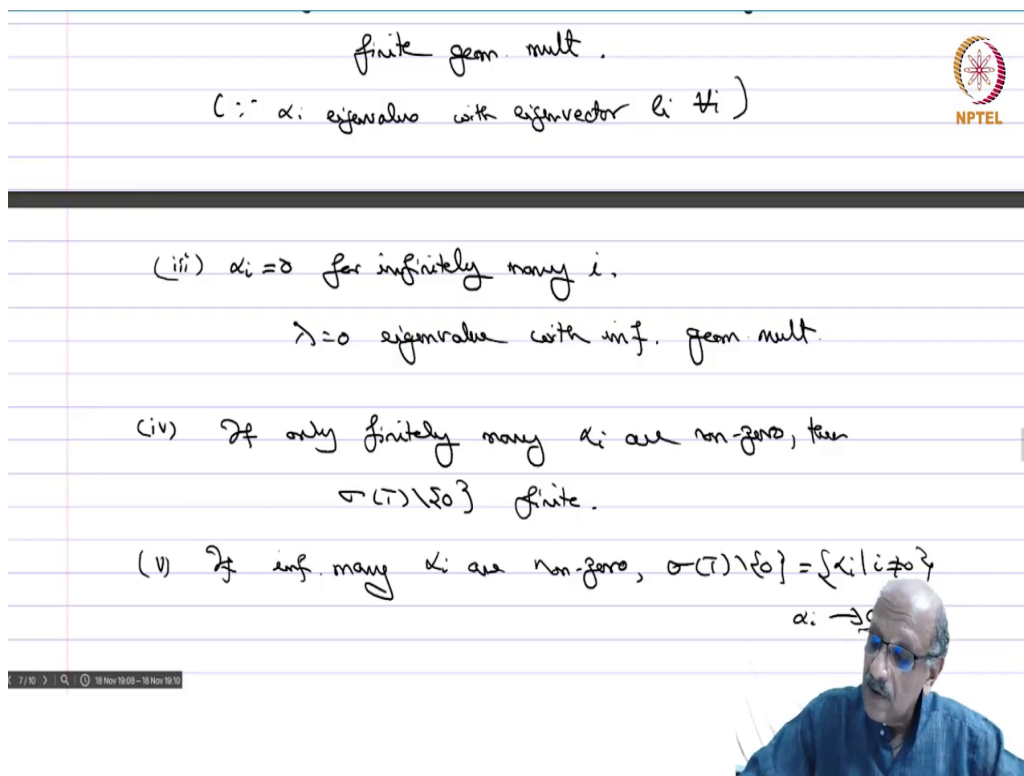 finite geom. mult.
(∵ αi eigenvalue with eigenvector ei ∀i)
NPTEL
(iii) αi = 0 for infinitely many i.
λ=0 eigenvalue with inf. geom. mult.
(iv) If only finitely many αi are non-zero, then
σ(T)\{0} finite.
(v) If inf. many αi are non-zero, σ(T)\{0} = {αi | i≠0}
αi →
7/10 18 Nov 19:08 – 18 Nov 19:10